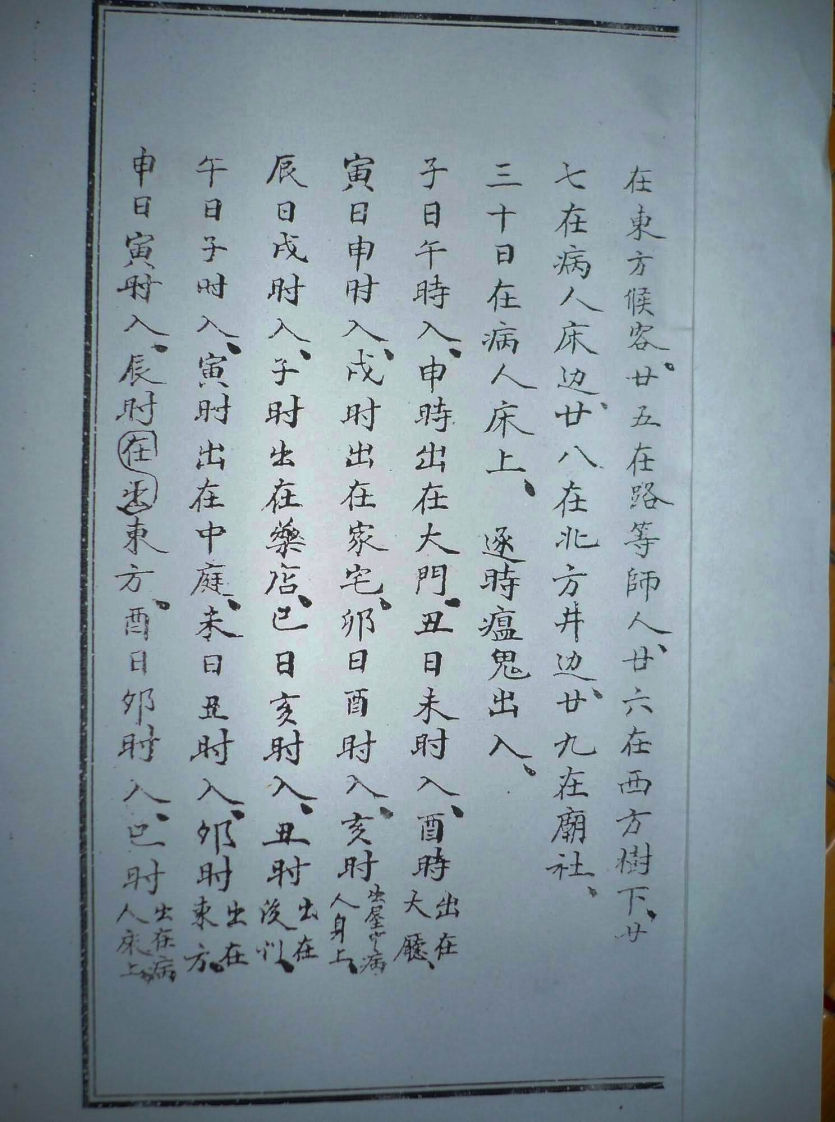 在東方候客、廿五在路等師人、廿六在西方樹下、廿
七在病人床边、廿八在北方井边、廿九在廟社、
三十日在病人床上、　逐時瘟鬼出入、
子日午時入、申時出在大門、丑日未时入、酉時出在大廳、
寅日申时入、戌时出在家宅、卯日酉时入、亥时出屋病人身上、
辰日戌时入、子时出在藥店、巳日亥时入、丑时出在後、
午日子时入、寅时出在中庭、未日丑时入、卯时出在東方、
申日寅时入、辰时在出東方、酉日卯时入、巳时出在病人床上、